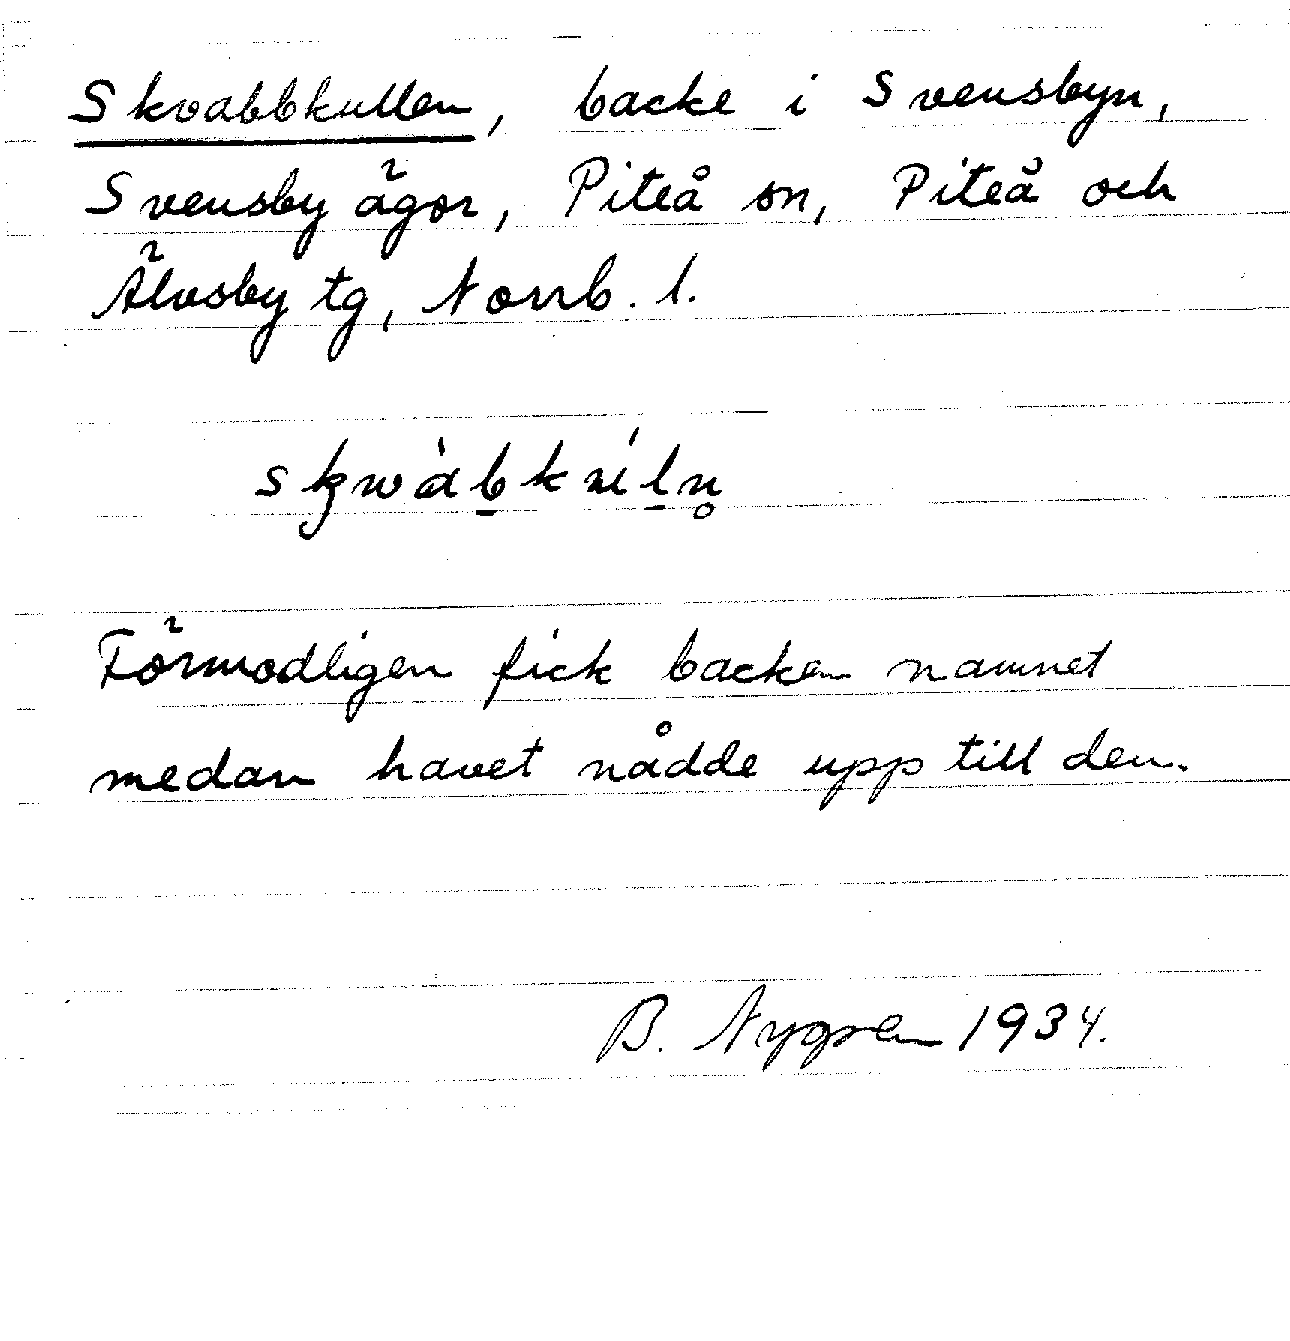 Skvabbkullen, backe i Svensbyn,
Svensby ägor, Piteå sn, Piteå och
Älvsby tg, Norrb. l.
Förmodligen fick backen namnet
medan havet nådde upp till den.
B. Nygren 1934.